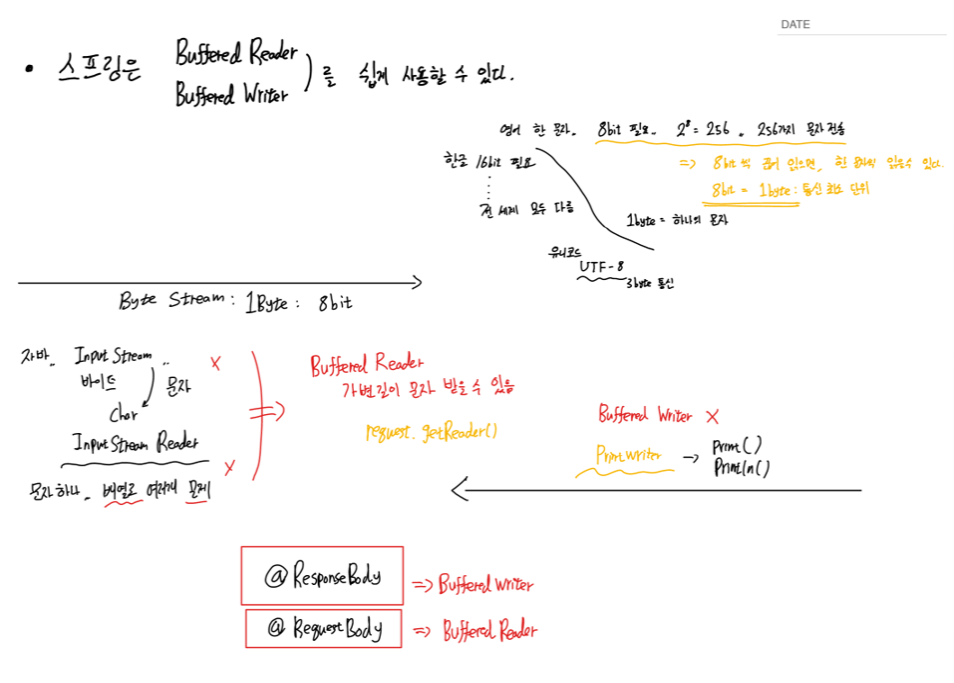 DATE
• 스프링은 Buffered Reader
Buffered Writer 를 쉽게 사용할 수 있다.
영어 한 문자. 8bit 필요. 2⁸ = 256. 256가지 문자 전송
한글 16bit 필요
⇒ 8bit 씩 끊어 읽으면, 한 문자씩 읽을수 있다.
8bit = 1byte : 통신 최소 단위
전 세계 모두 다름
1byte = 하나의 문자
유니코드
UTF-8
3byte 통신
Byte Stream : 1Byte : 8bit
자바.. Input Stream .. X
바이트
문자
Char
InputStream Reader
X
문자하나. 배열로 여러개 문제
⇒ Buffered Reader
가변길이 문자 받을 수 있음
request.getReader()
Buffered Writer X
PrintWriter → Print()
Println()
@ResponseBody ⇒ Buffered Writer
@RequestBody ⇒ Buffered Reader